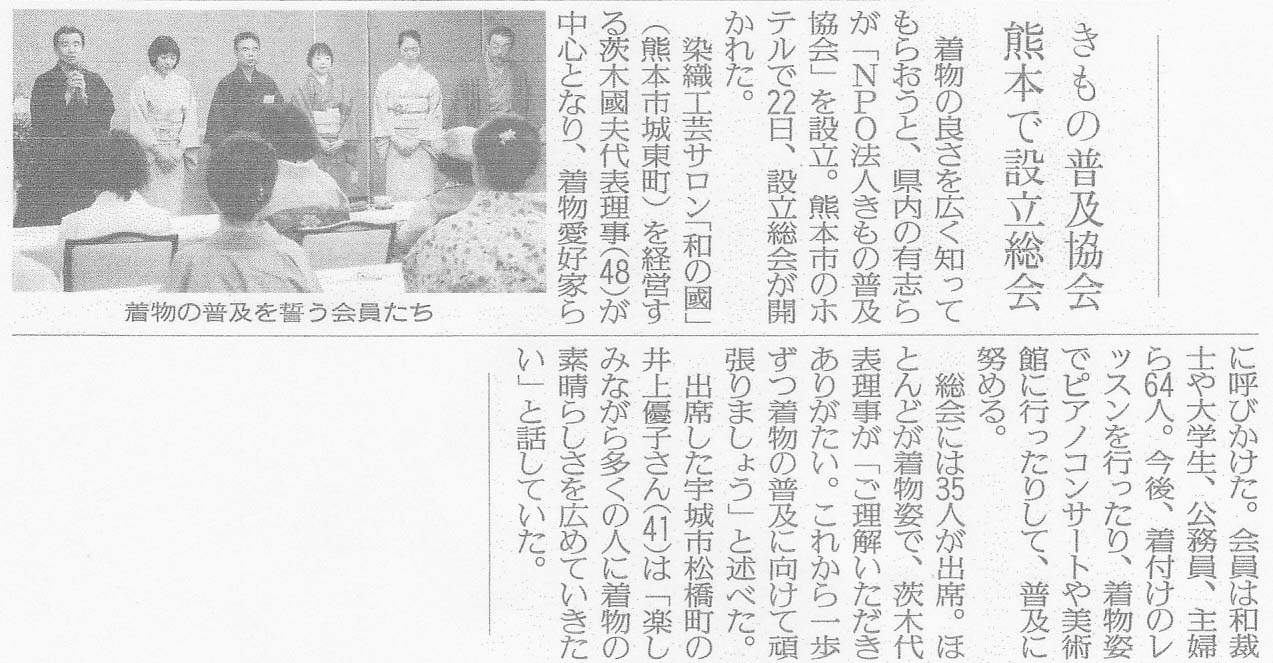 きもの普及協会
熊本で設立総会
着物の良さを広く知って
もらおうと、県内の有志ら
が「ＮＰＯ法人きもの普及
協会」を設立。熊本市のホ
テルで22日、設立総会が開
かれた。
染織工芸サロン「和の國」
（熊本市城東町）を経営す
る茨木國夫代表理事(48)が
中心となり、着物愛好家ら
に呼びかけた。会員は和裁
士や大学生、公務員、主婦
ら64人。今後、着付けのレ
ッスンを行ったり、着物姿
でピアノコンサートや美術
館に行ったりして、普及に
努める。
総会には35人が出席。ほ
とんどが着物姿で、茨木代
表理事が「ご理解いただき
ありがたい。これから一歩
ずつ着物の普及に向けて頑
張りましょう」と述べた。
出席した宇城市松橋町の
井上優子さん(41)は「楽し
みながら多くの人に着物の
素晴らしさを広めていきた
い」と話していた。
着物の普及を誓う会員たち